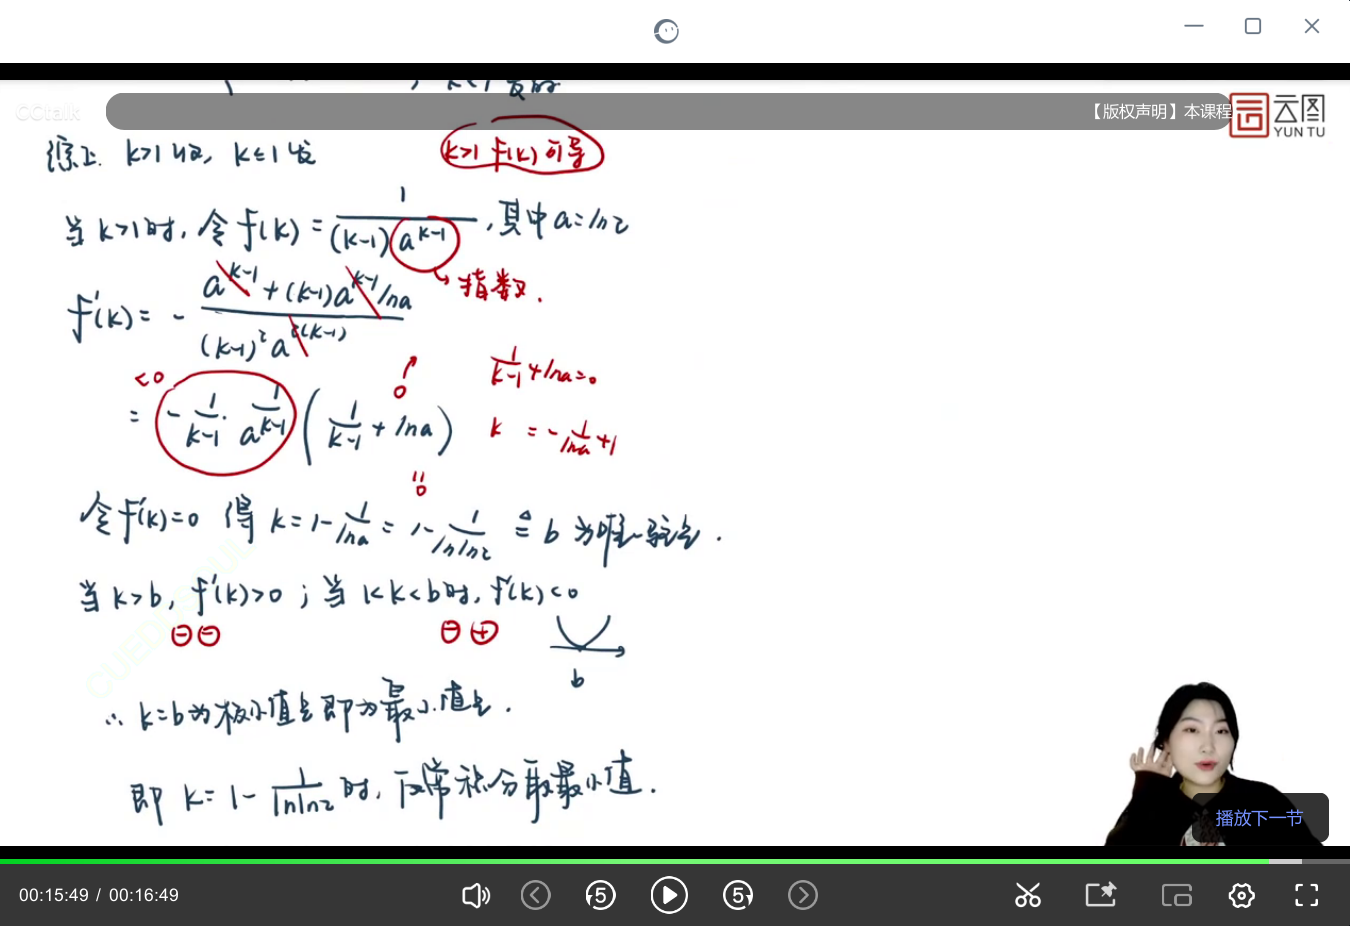 CCtalk
【版权声明】本课程
云图
YUN TU
综上. k>1 收, k≤1 发
k>1 f(k) 可导
当 k>1时, 令 f(k) = 1/((k-1)a^(k-1)), 其中 a=ln2
→ 指数.
f'(k) = - (a^(k-1) + (k-1)a^(k-1) lna) / ((k-1)²a^(2(k-1)))
<0
= - 1/(k-1) · 1/a^(k-1) ( 1/(k-1) + lna )
1/(k-1) + lna = 0
k = - 1/lna + 1
令 f'(k)=0 得 k = 1- 1/lna = 1- 1/lnln2 ≜ b 为唯一驻点.
当 k>b, f'(k)>0 ; 当 1<k<b 时, f'(k)<0
⊖⊖
⊖⊕
b
∴ k=b 为极小值点即为最小值点.
即 k= 1- 1/lnln2 时, 反常积分取最小值.
播放下一节
00:15:49 / 00:16:49
5
5